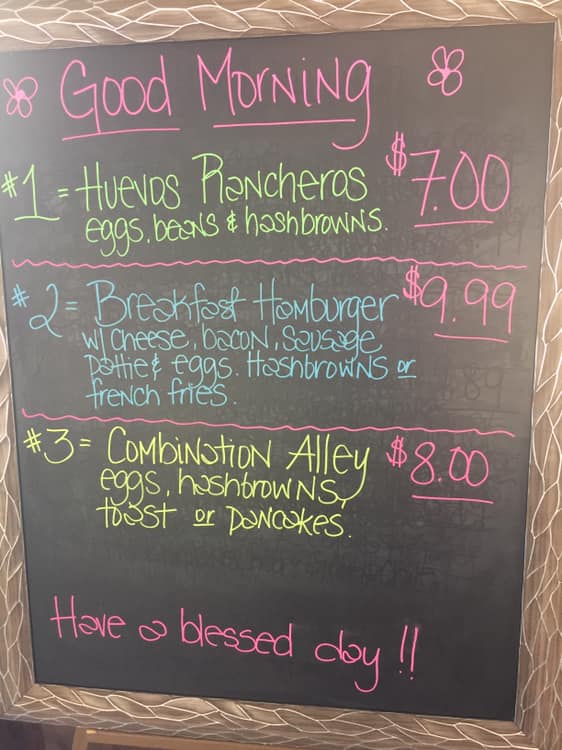 Good Morning
#1 = Huevos Rancheros $7.00
eggs, beans & hashbrowns.
#2 = Breakfast Hamburger $9.99
w/ cheese, bacon, sausage
pattie & eggs. Hashbrowns or
french fries.
#3 = Combination Alley $8.00
eggs, hashbrowns,
toast or pancakes.
Have a blessed day !!